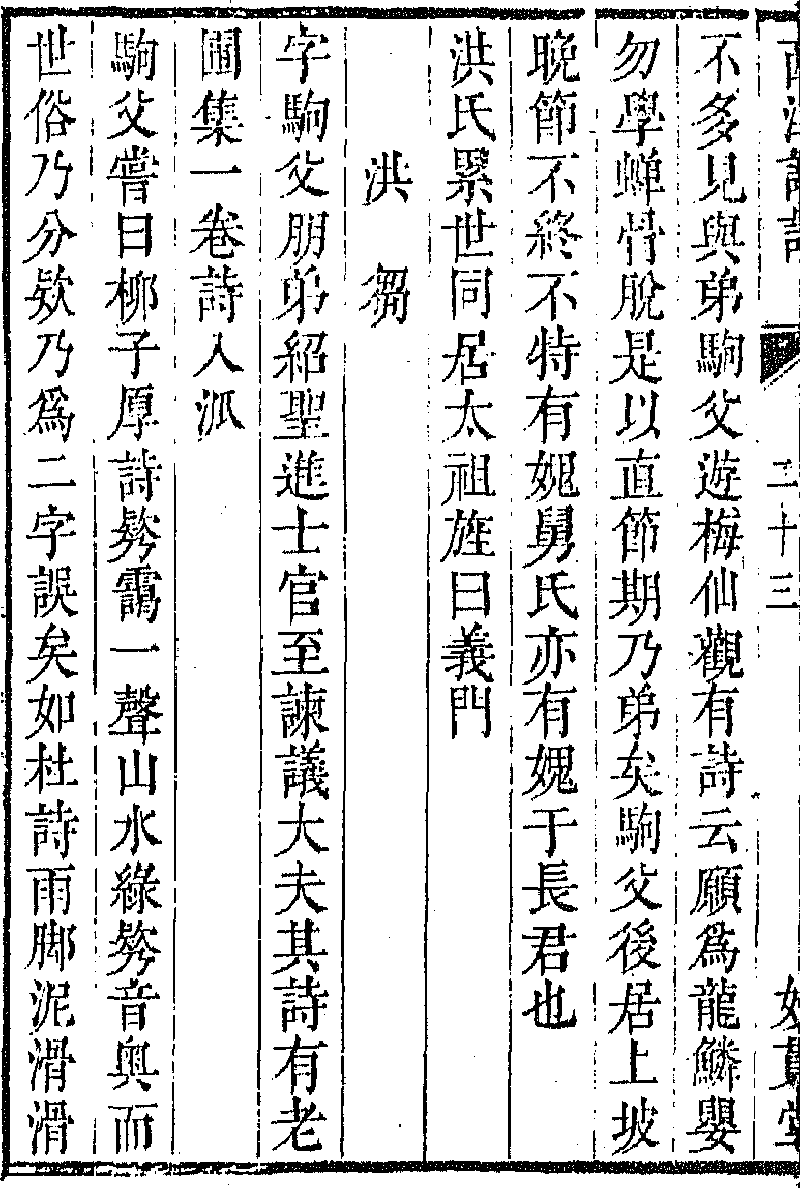 二十三
不多見與弟駒父遊梅仙觀有詩云願爲龍鱗嬰
勿學蟬骨脫是以直節期乃弟矣駒父後居上坡
晚節不終不特有媿舅氏亦有媿于長君也
洪氏累世同居太祖旌曰義門
洪芻
字駒父朋弟紹聖進士官至諫議大夫其詩有老
圃集一卷詩入派
駒父嘗曰柳子厚詩靄一聲山水綠音奥而
世俗乃分欸乃爲二字誤矣如杜詩雨脚泥滑滑